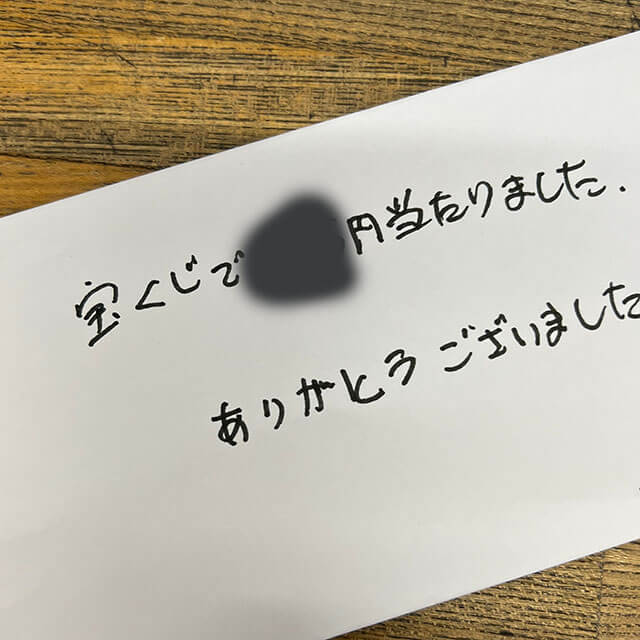 宝くじで 円当たりました.
ありがとうございました